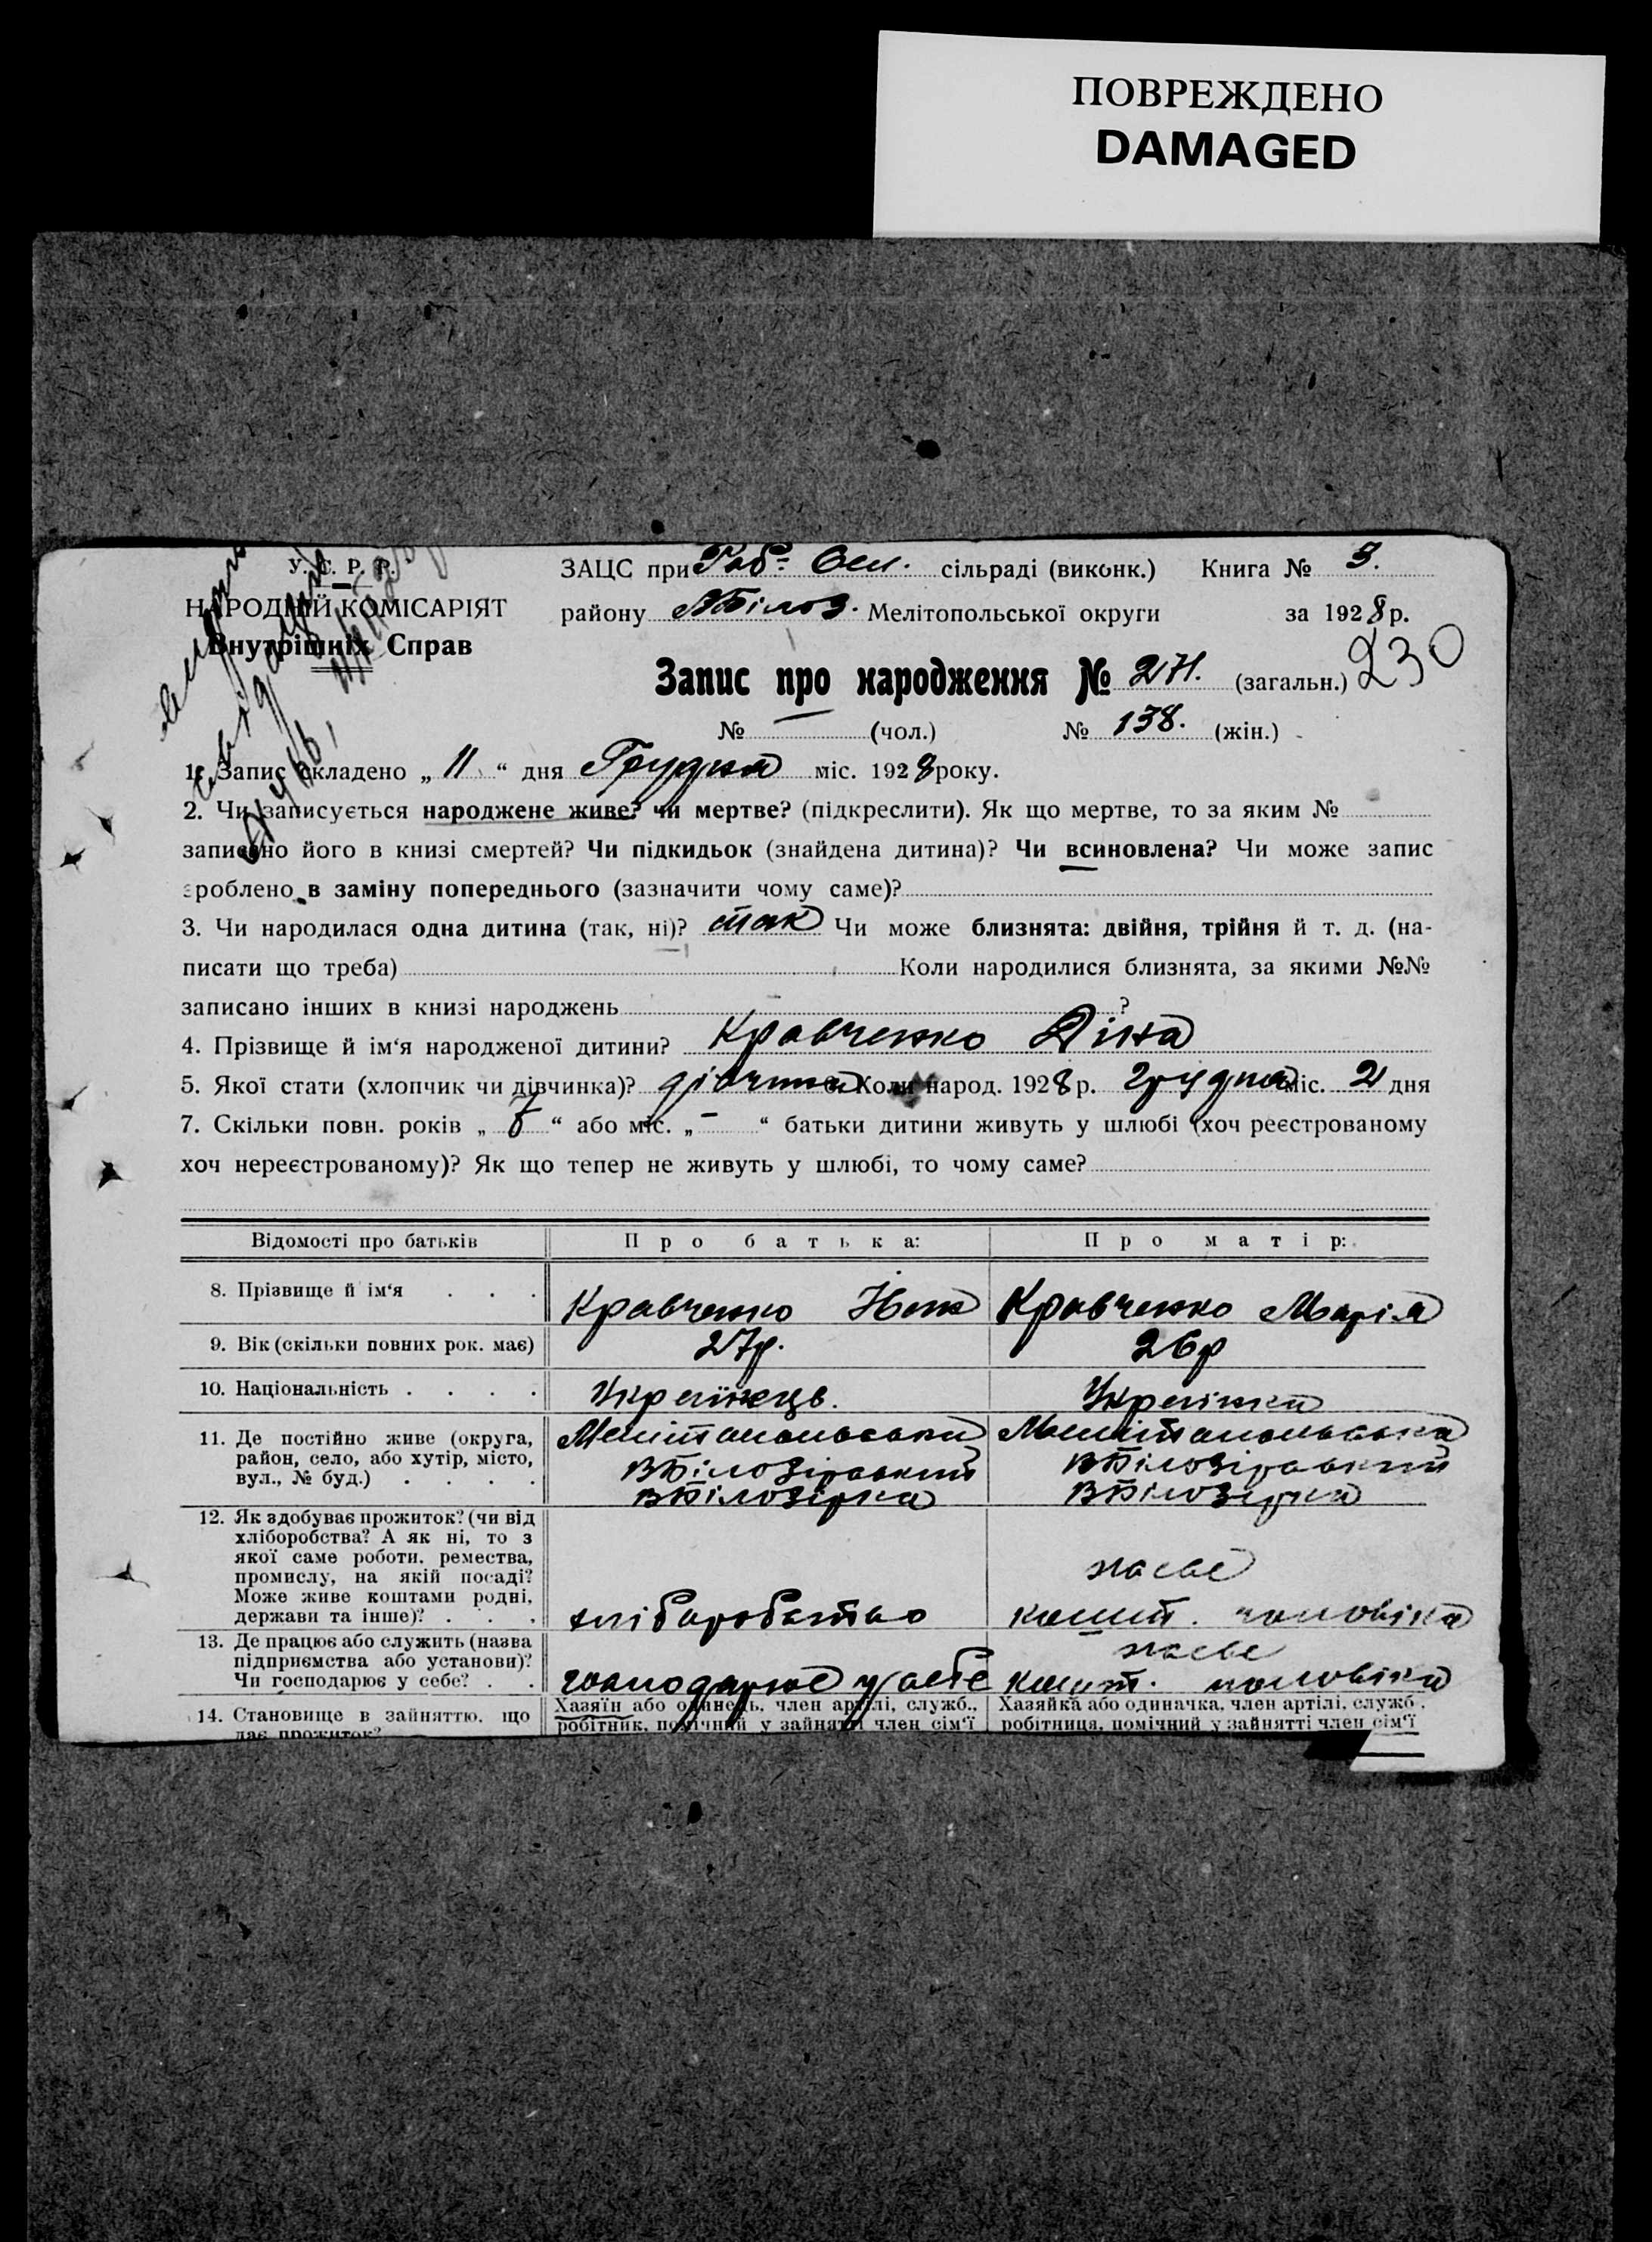 ПОВРЕЖДЕНО
DAMAGED
У. С. Р. Р.
НАРОДНІЙ КОМІСАРІЯТ
Внутрішніх Справ
ЗАЦС при Раб. Сел. сільраді (виконк.) Книга № 3.
району ВБілоз. Мелітопольської округи за 1928 р.
230
Запис про народження № 271. (загальн.)
№ — (чол.) № 138. (жін.)
1. Запис складено „ 11 “ дня Грудня міс. 1928 року.
2. Чи записується народжене живе? чи мертве? (підкреслити). Як що мертве, то за яким №
записано його в книзі смертей? Чи підкидьок (знайдена дитина)? Чи всиновлена? Чи може запис
зроблено в заміну попереднього (зазначити чому саме)?
3. Чи народилася одна дитина (так, ні)? так Чи може близнята: двійня, трійня й т. д. (на-
писати що треба) Коли народилися близнята, за якими №№
записано інших в книзі народжень ?
4. Прізвище й ім‘я народженої дитини? Кравченко Діна
5. Якої стати (хлопчик чи дівчинка)? дівчина 6. Коли народ. 1928 р. Грудня міс. 2 дня
7. Скільки повн. років „ 7 “ або міс. „ – “ батьки дитини живуть у шлюбі (хоч реєстрованому
хоч нереєстрованому)? Як що тепер не живуть у шлюбі, то чому саме?
Відомості про батьків Про батька: Про матір:
8. Прізвище й ім‘я . . . Кравченко Кравченко Марія
9. Вік (скільки повних рок. має) 27р. 26р
10. Національність . . . . Українець. Українка
11. Де постійно живе (округа, район, село, або хутір, місто, вул., № буд.) . . . .
Мелітопольська Мелітопольська
ВБілозірський ВБілозірський
ВБілозірка ВБілозірка
12. Як здобуває прожиток? (чи від хліборобства? А як ні, то з якої саме роботи, ремества, промислу, на якій посаді? Може живе коштами родні, держави та інше)? . . .
хліборобство кошт. чоловіка
13. Де працює або служить (назва підприємства або установи)? Чи господарює у себе? . .
господарює у себе кошт. чоловіка
14. Становище в зайняттю, що дає прожиток?
Хазяїн або одинець, член артілі, служб., робітник, помічний у зайнятті член сім‘ї
Хазяйка або одиначка, член артілі, служб. робітниця, помічний у зайнятті член сім‘ї